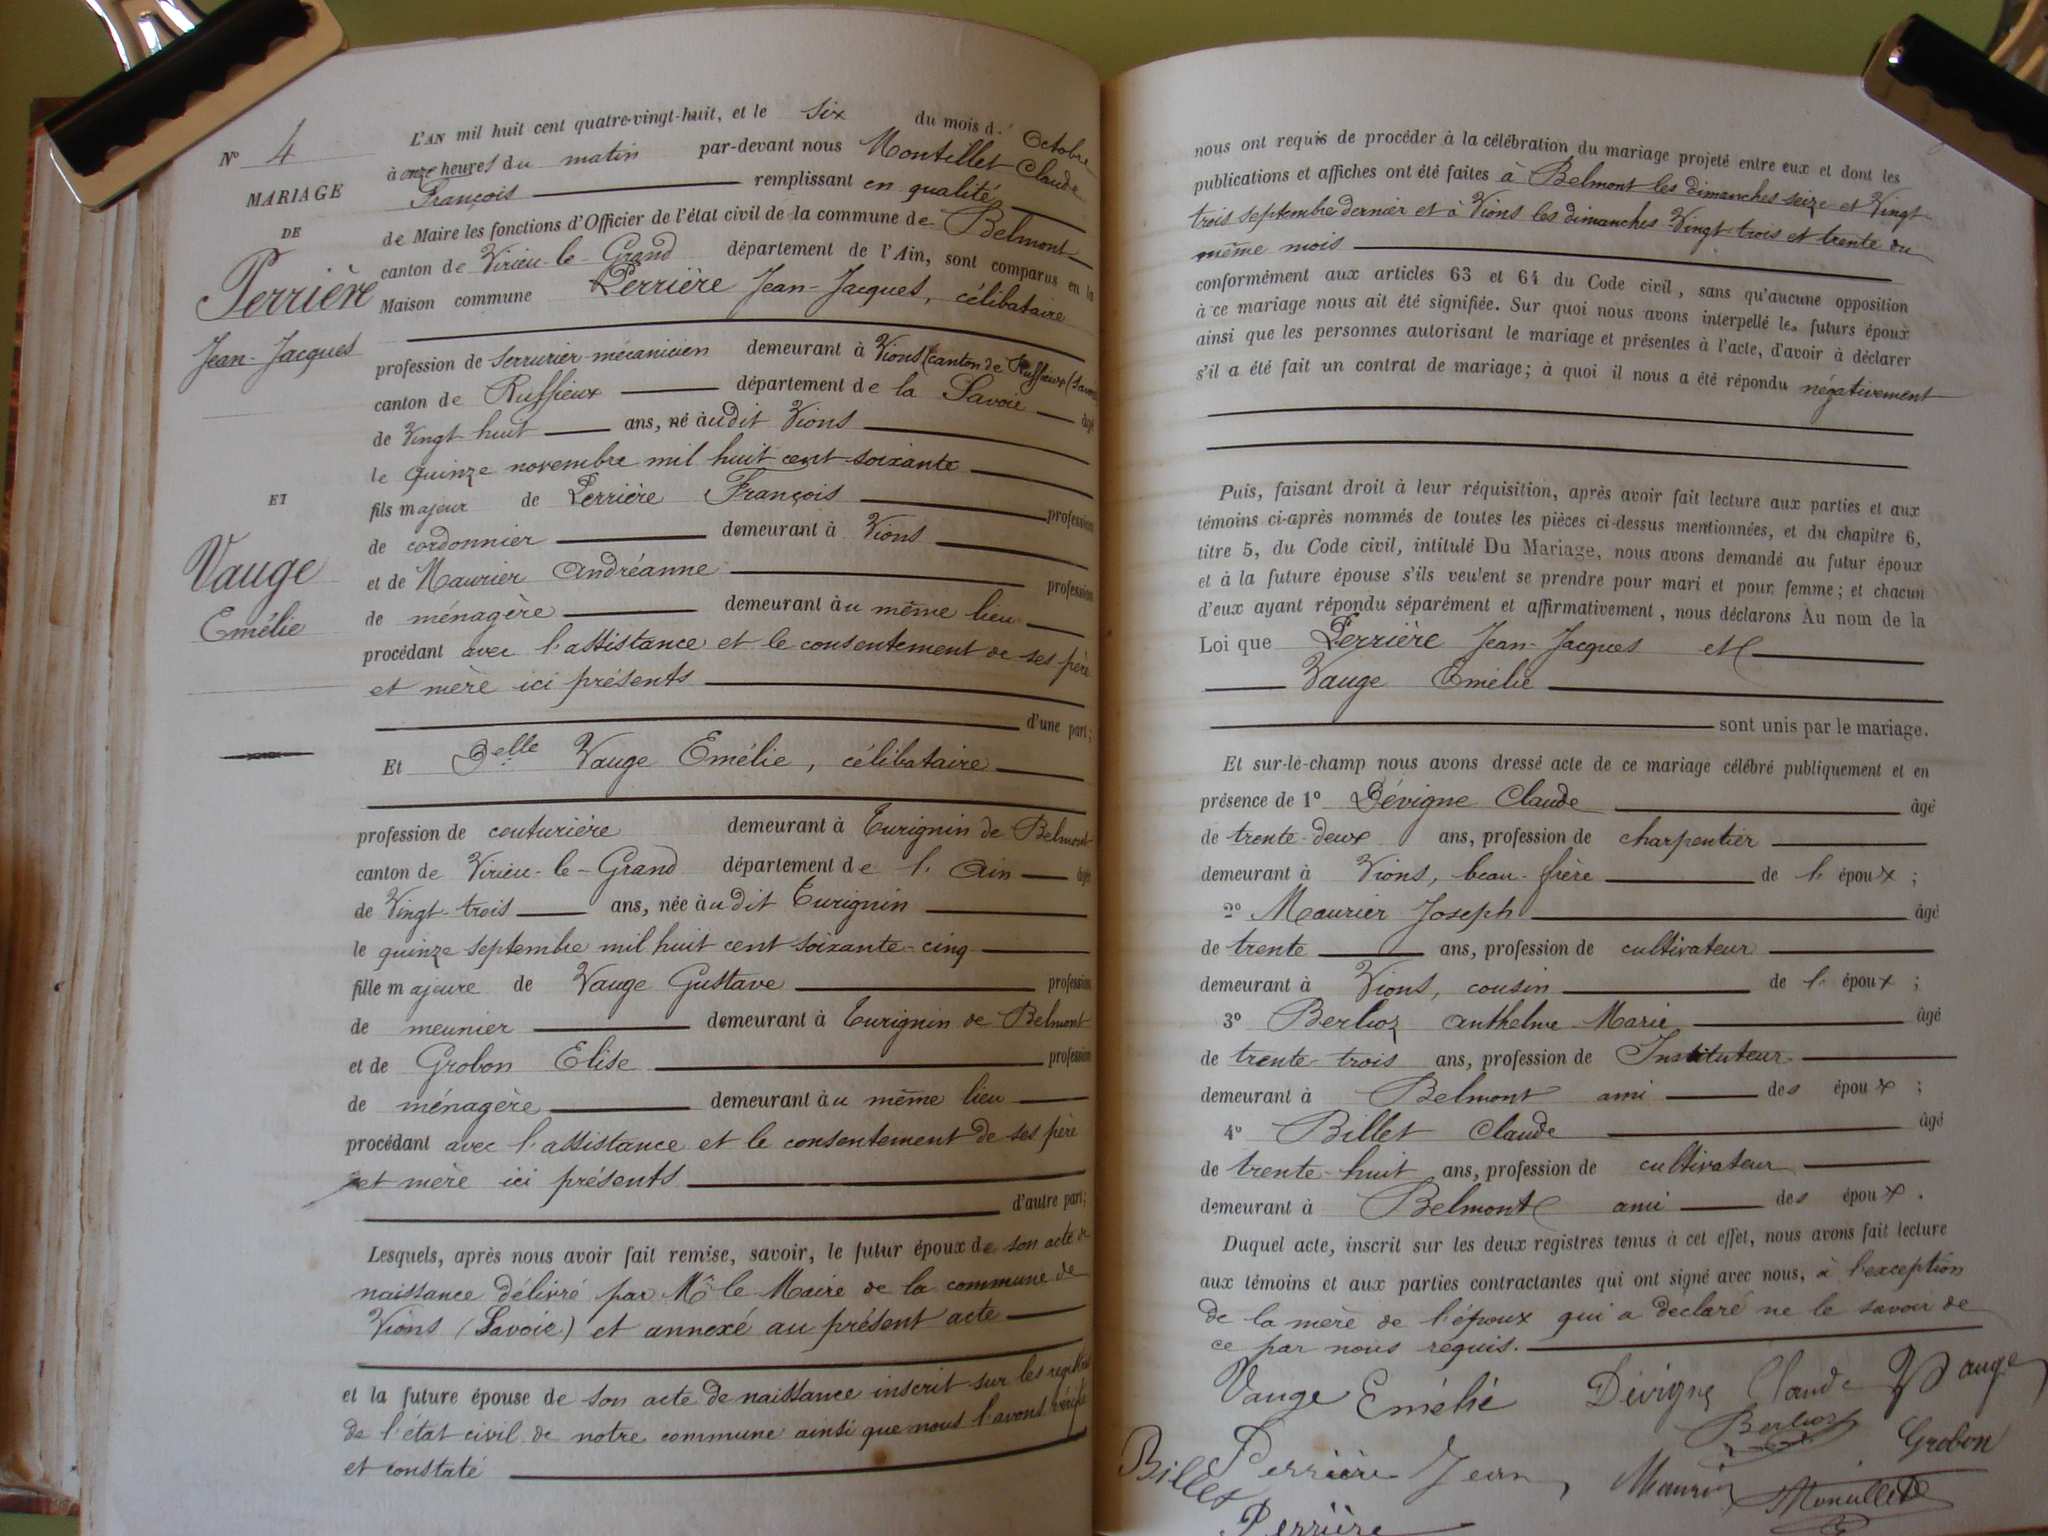 N° 4
MARIAGE
DE
Perrière
Jean-Jacques
ET
Vauge
Emélie
L'AN mil huit cent quatre-vingt-huit, et le six du mois d' Octobre
à onze heures du matin par-devant nous Montillet Claude
François remplissant en qualité
de Maire les fonctions d'Officier de l'état civil de la commune de Belmont
canton de Virieu-le-Grand département de l'Ain, sont comparus en la
Maison commune Perrière Jean-Jacques, célibataire
profession de serrurier-mécanicien demeurant à Vions (canton de Ruffieux (Savoie
canton de Ruffieux département de la Savoie âgé
de Vingt-huit ans, né audit Vions
le quinze novembre mil huit cent soixante
fils majeur de Perrière François profession
de cordonnier demeurant à Vions
et de Maurier Andréanne profession
de ménagère demeurant au même lieu
procédant avec l'assistance et le consentement de ses père
et mère ici présents
d'une part;
Et Delle Vauge Emélie, célibataire
profession de couturière demeurant à Turignin de Belmont
canton de Virieu-le-Grand département de l'Ain âgée
de Vingt-trois ans, née audit Turignin
le quinze septembre mil huit cent soixante-cinq
fille majeure de Vauge Gustave profession
de meunier demeurant à Turignin de Belmont
et de Grobon Elise profession
de ménagère demeurant au même lieu
procédant avec l'assistance et le consentement de ses père
et mère ici présents
d'autre part;
Lesquels, après nous avoir fait remise, savoir, le futur époux de son acte de
naissance délivré par Mr le Maire de la commune de
Vions (Savoie) et annexé au présent acte
et la future épouse de son acte de naissance inscrit sur les registres
de l'état civil de notre commune ainsi que nous l'avons vérifié
et constaté
nous ont requis de procéder à la célébration du mariage projeté entre eux et dont les
publications et affiches ont été faites à Belmont les dimanches seize et Vingt
trois septembre dernier et à Vions les dimanches Vingt-trois et trente du
même mois
conformément aux articles 63 et 64 du Code civil, sans qu'aucune opposition
à ce mariage nous ait été signifiée. Sur quoi nous avons interpellé les futurs époux
ainsi que les personnes autorisant le mariage et présentes à l'acte, d'avoir à déclarer
s'il a été fait un contrat de mariage; à quoi il nous a été répondu négativement
Puis, faisant droit à leur réquisition, après avoir fait lecture aux parties et aux
témoins ci-après nommés de toutes les pièces ci-dessus mentionnées, et du chapitre 6,
titre 5, du Code civil, intitulé Du Mariage, nous avons demandé au futur époux
et à la future épouse s'ils veulent se prendre pour mari et pour femme; et chacun
d'eux ayant répondu séparément et affirmativement, nous déclarons Au nom de la
Loi que Perrière Jean-Jacques et
Vauge Emélie
sont unis par le mariage.
Et sur-le-champ nous avons dressé acte de ce mariage célébré publiquement et en
présence de 1° Dévigne Claude âgé
de trente-deux ans, profession de charpentier
demeurant à Vions, beau-frère de l'époux;
2° Maurier Joseph âgé
de trente ans, profession de cultivateur
demeurant à Vions, cousin de l'époux;
3° Berlioz Anthelme Marie âgé
de trente-trois ans, profession de Instituteur
demeurant à Belmont ami des époux;
4° Billet Claude âgé
de trente-huit ans, profession de cultivateur
demeurant à Belmont ami des époux.
Duquel acte, inscrit sur les deux registres tenus à cet effet, nous avons fait lecture
aux témoins et aux parties contractantes qui ont signé avec nous, à l'exception
de la mère de l'époux qui a déclaré ne le savoir de
ce par nous requis.
Vauge Emélie Dévigne Claude Vauge
Berlioz Grobon
Billet Perrière Jean Maurier Montillet
Perrière